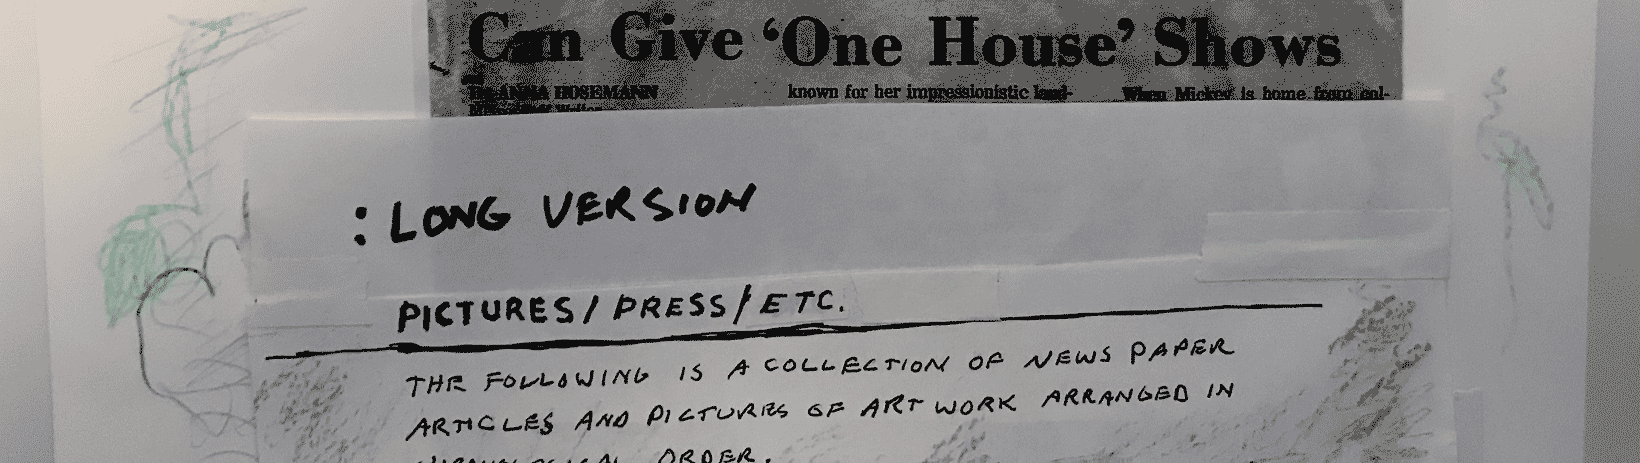 Can Give ‘One House’ Shows
By ANNA HOSEMANN
known for her impressionistic land-
When Mickey is home from col-
: LONG VERSION
PICTURES / PRESS / ETC.
THE FOLLOWING IS A COLLECTION OF NEWS PAPER
ARTICLES AND PICTURES OF ART WORK ARRANGED IN
ORDER.